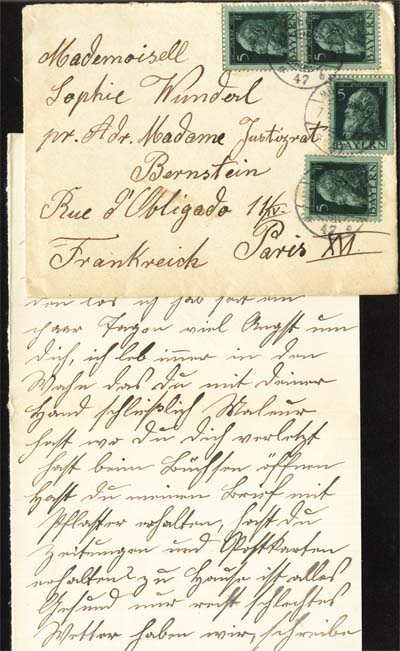 Mademoisell
Sophie Wunderl
pr. Adr. Madame Justizrat
Bernstein
Rue d'Obligado 11 IV.
Paris XVI.
Frankreich
5 BAYERN
5 BAYERN
5 BAYERN
5 BAYERN
den los ich hab seit ein
paar Tagen viel Angst um
dich, ich leb immer in den
Wahn das du mit deiner
Hand schließlich Maleur
hast wo du dich verletzt
hast beim Büchsen öffnen
hast du meinen Brief mit
Pflaster erhalten, hast du
Zeitungen und Postkarten
erhalten? zu Hause ist alles
Gesund nur recht schlechtes
Wetter haben wir, schreibe